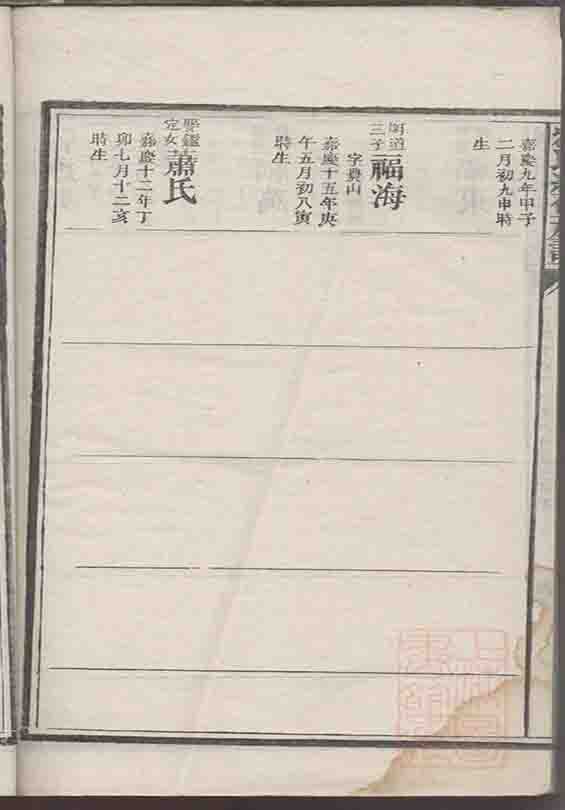 嘉慶九年甲子
二月初九申時
生
明道
三子
福海
字貴山
嘉慶十五年庚
午五月初八寅
時生
娶鑑
定女
蕭氏
嘉慶十二年丁
卯七月十二亥
時生